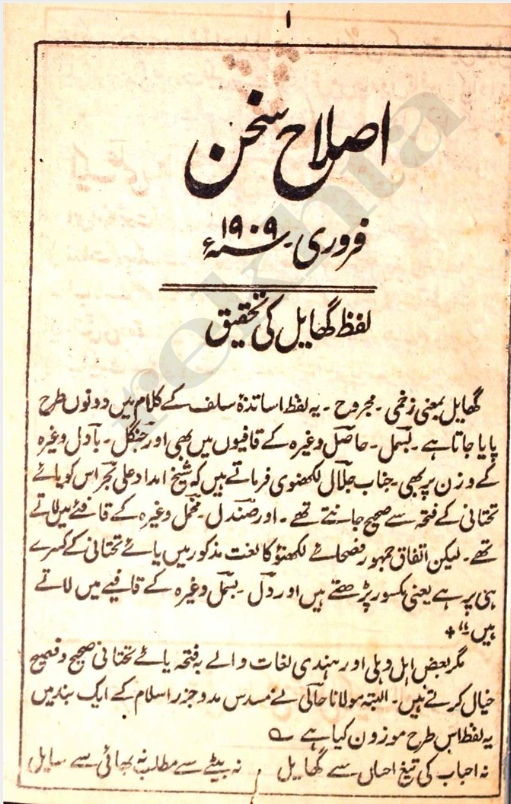 ۱
اصلاح سخن
فروری ۔ سنہ ۱۹۰۹ء
لفظ گھایل کی تحقیق
گھایل بمعنی زخمی ۔ مجروح ۔ یہ لفظ اساتذۂ سلف کے کلام میں دونوں طرح
پایا جاتا ہے ۔ بسمل ۔ حاصل وغیرہ کے قافیوں میں بھی اور جنگل ۔ بادل وغیرہ
کے وزن پر بھی ۔ جناب جلال لکھنوی فرماتے ہیں کہ شیخ امداد علی بحر اس کو یائے
تحتانی کے فتحہ سے صحیح جانتے تھے ۔ اور صندل ۔ مخمل وغیرہ کے قافئے میں لاتے
تھے ۔ لیکن اتفاق جمہور فصحائے لکھنؤ کا لغت مذکور میں یائے تحتانی کے کسرے
ہی پر ہے یعنی مکسور پڑھتے ہیں اور دل ۔ بسمل وغیرہ کے قافیے میں لاتے
ہیں ؛؛ +
مگر بعض اہل دہلی اور ہندی لغات والے بہ فتحہ یائے تحتانی صحیح و فصیح
خیال کرتے ہیں ۔ البتہ مولانا حالی نے مسدس مد و جزر اسلام کے ایک بند میں
یہ لفظ اس طرح موزون کیا ہے ؎
نہ احباب کی تیغ احساں سے گھایل نہ بیٹے سے مطلب نہ بھائی سے سایل
rekhta